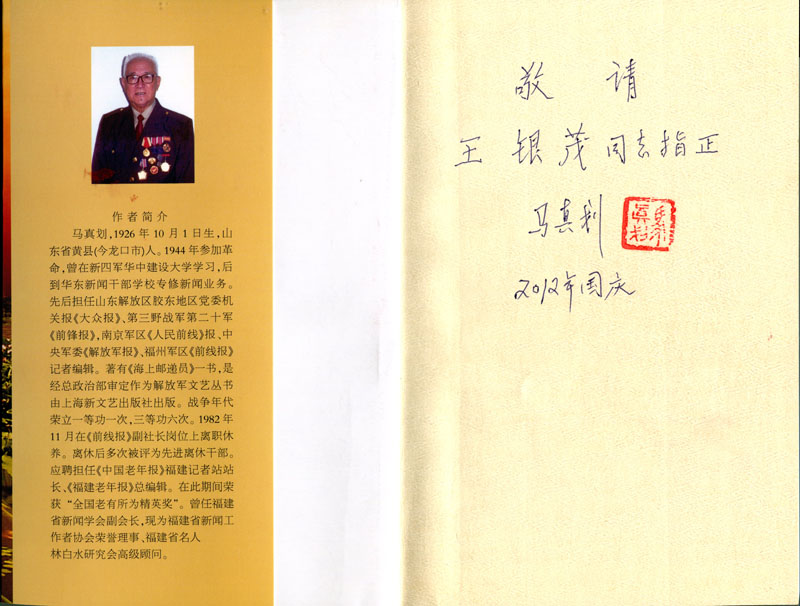 作者简介
马真划,1926年10月1日生,山
东省黄县(今龙口市)人。1944年参加革
命,曾在新四军华中建设大学学习,后
到华东新闻干部学校专修新闻业务。
先后担任山东解放区胶东地区党委机
关报《大众报》、第三野战军第二十军
《前锋报》,南京军区《人民前线》报、中
央军委《解放军报》、福州军区《前线报》
记者编辑。著有《海上邮递员》一书,是
经总政治部审定作为解放军文艺丛书
由上海新文艺出版社出版。战争年代
荣立一等功一次,三等功六次。1982年
11月在《前线报》副社长岗位上离职休
养。离休后多次被评为先进离休干部。
应聘担任《中国老年报》福建记者站站
长、《福建老年报》总编辑。在此期间荣
获“全国老有所为精英奖”。曾任福建
省新闻学会副会长,现为福建省新闻工
作者协会荣誉理事、福建省名人
林白水研究会高级顾问。
敬请
王银茂同志指正
马真划
2012年国庆